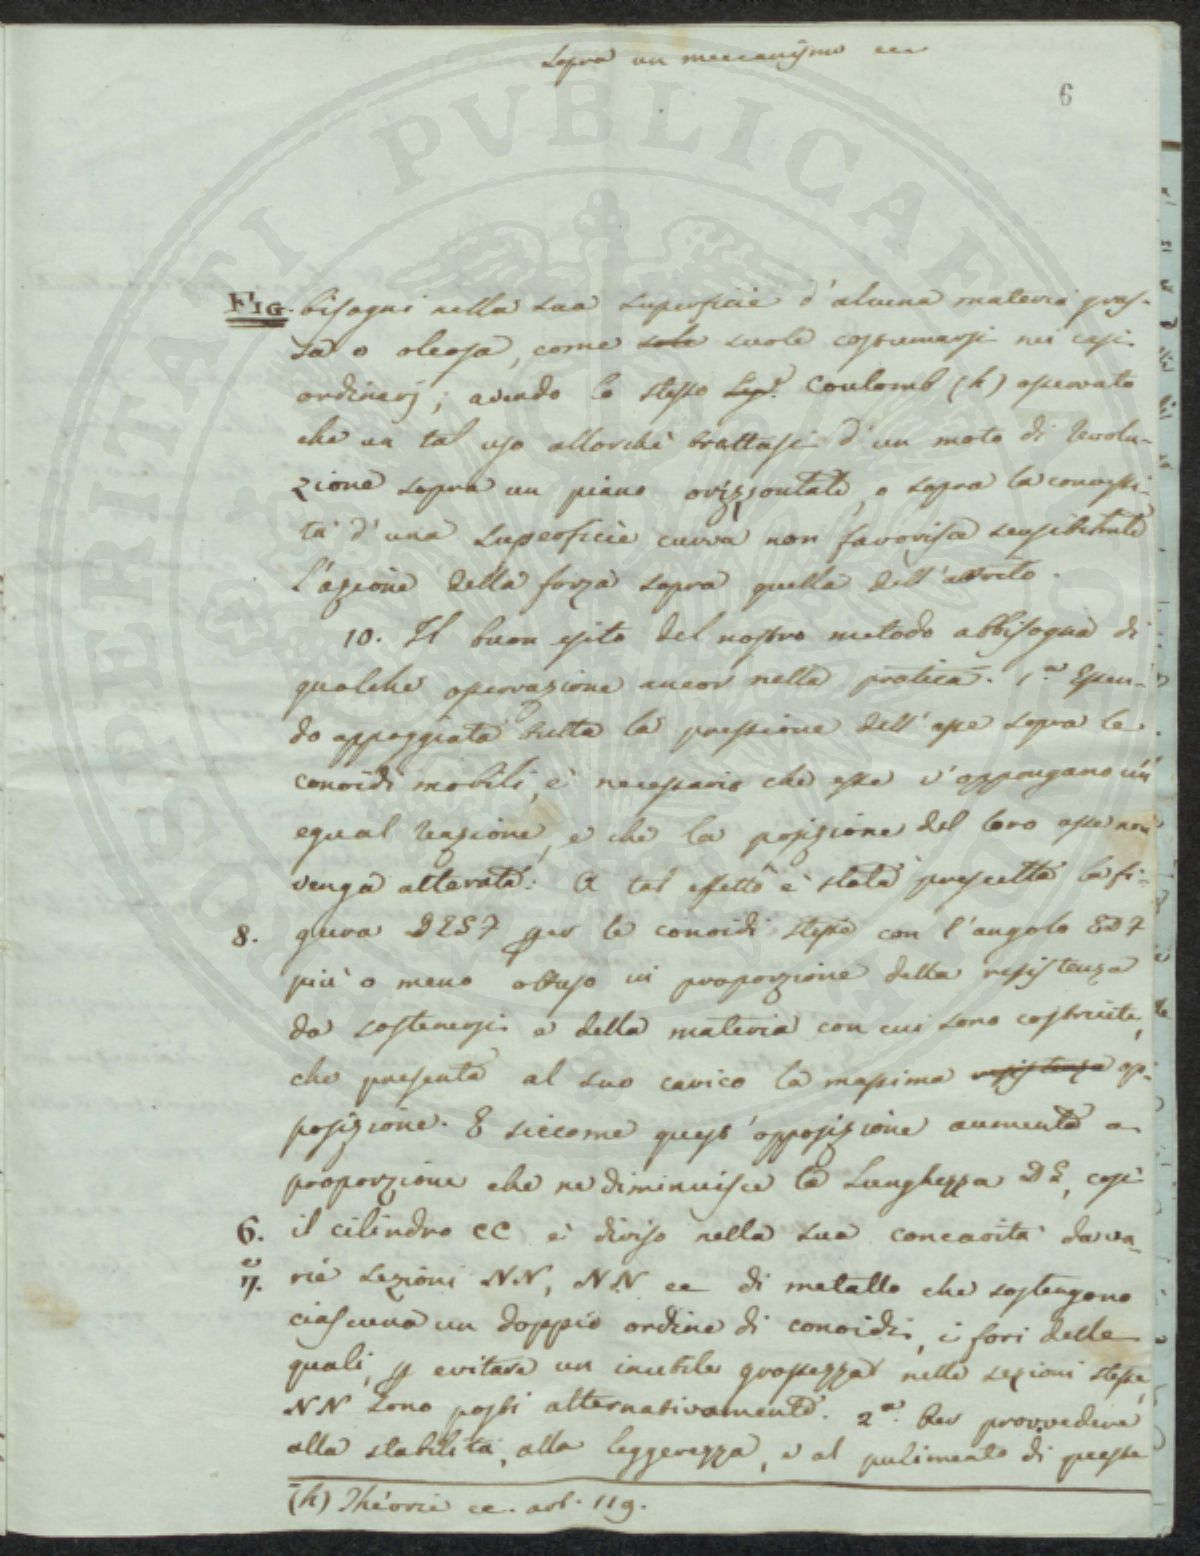 Sopra un meccanismo ecc
6
FIG. bisogni nella sua superficie d'alcuna materia gras-
sa o oleosa, come sole suole costumarsi nei casi
ordinarj; avendo lo stesso Sigr. Coulomb (h) osservato
che un tal uso allorchè trattasi d'un moto di revolu-
zione sopra un piano orizzontale, o sopra la convessi-
tà d'una superficie curva non favorisce sensibilmte
l'azione della forza sopra quella dell'attrito.
10. Il buon esito del nostro metodo abbisogna di
qualche osservazione ancor nella pratica. 1.a Essen-
do appoggiata tutta la pressione dell'asse sopra le
conoidi mobili, è necessario che esse v'oppongano un'
egual reazione, e che la posizione del loro asse non
venga alterata. A tal effetto è stata prescelta la fi-
8. gura DESF per le conoidi stesse con l'angolo EDF
più o meno ottuso in proporzione della resistenza
da sostenersi e della materia con cui sono costruite,
che presenta al suo carico la massima resistenza op-
posizione. E siccome quest'opposizione aumenta a
proporzione che ne diminuisce la lunghezza DE, così
6. il cilindro CC è diviso nella sua concavità da va-
e
7. rie sezioni NN, NN ec di metallo che sostengono
ciascuna un doppio ordine di conoidi, i fori delle
quali, p evitare un inutile grossezza nelle sezioni stesse,
NN sono posti alternativamente. 2.a Per provvedere
alla stabilità, alla leggerezza, e al pulimento di queste
(h) Théorie ec. art. 119.